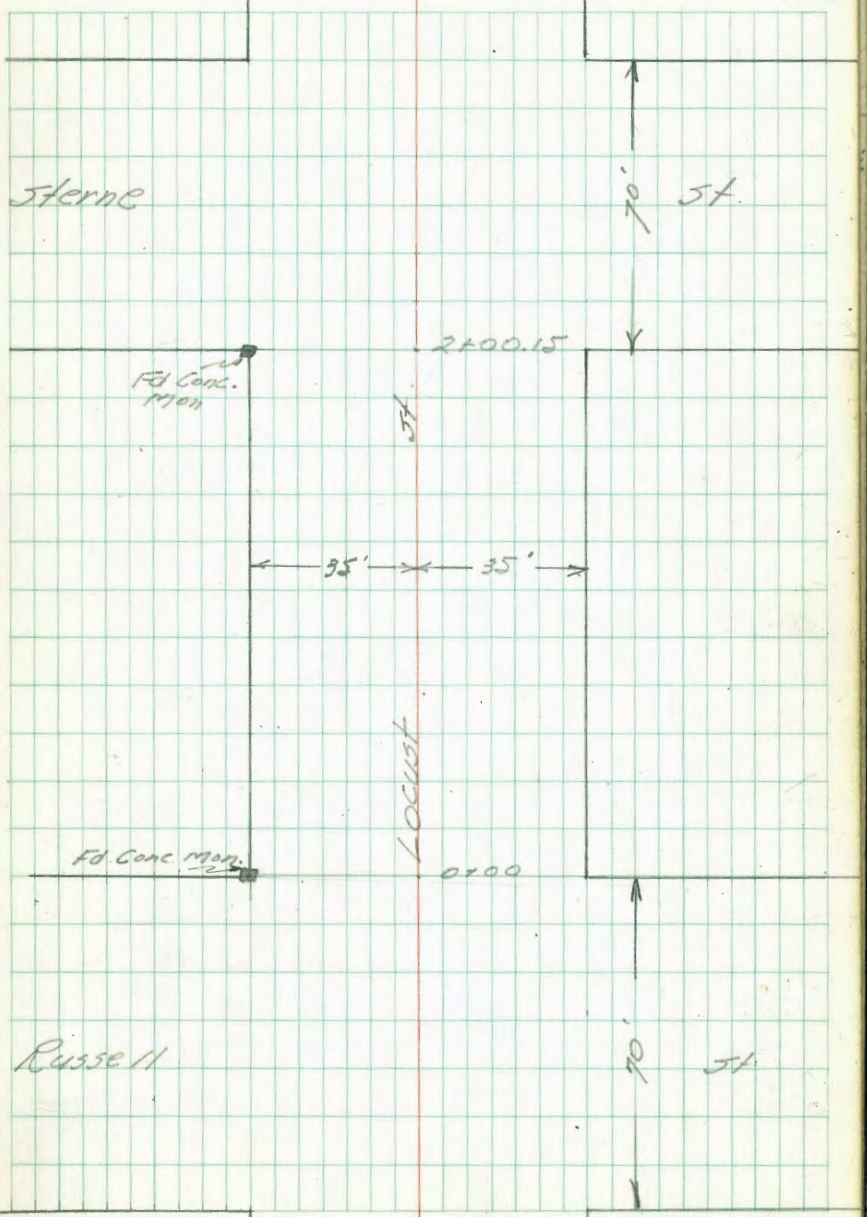 Sterne
70'
St.
2+00.15
Fd Conc.
Mon
St.
35'
35'
Locust
Fd Conc Mon.
0+00
Russell
70'
St.